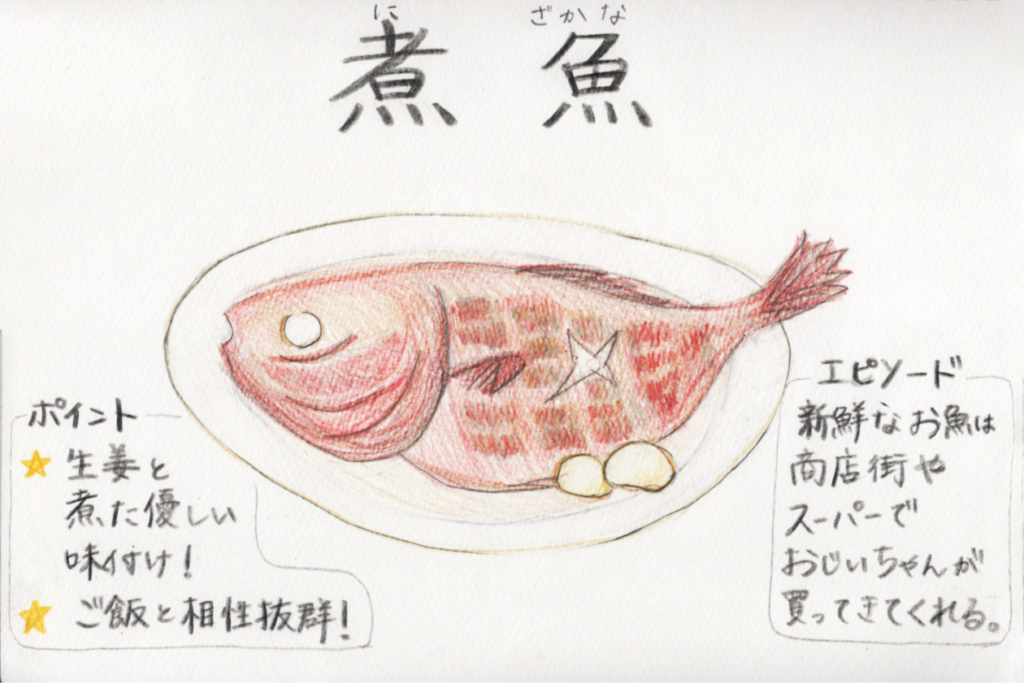 に ざかな
煮 魚
ポイント
生姜と
煮た優しい
味付け!
ご飯と相性抜群!
エピソード
新鮮なお魚は
商店街や
スーパーで
おじいちゃんが
買ってきてくれる。